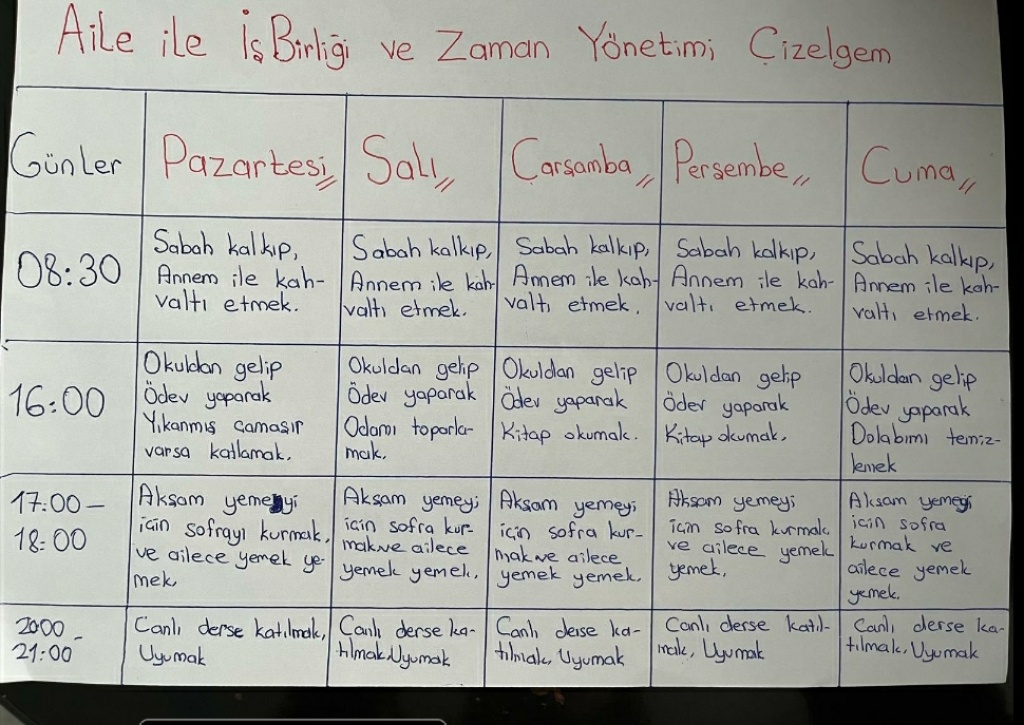 Aile ile İşBirliği ve Zaman Yönetimi Çizelgem
Günler
Pazartesi
Salı
Çarşamba
Perşembe
Cuma
08:30
Sabah kalkıp,
Annem ile kah-
valtı etmek.
Sabah kalkıp,
Annem ile kah-
valtı etmek.
Sabah kalkıp,
Annem ile kah-
valtı etmek.
Sabah kalkıp,
Annem ile kah-
valtı etmek.
Sabah kalkıp,
Annem ile kah-
valtı etmek.
16:00
Okuldan gelip
Ödev yaparak
Yıkanmış çamaşır
varsa katlamak.
Okuldan gelip
Ödev yaparak
Odamı toparla-
mak.
Okuldan gelip
Ödev yaparak
Kitap okumak.
Okuldan gelip
Ödev yaparak
Kitap okumak.
Okuldan gelip
Ödev yaparak
Dolabımı temiz-
lemek
17:00-
18:00
Akşam yemeyi
için sofrayı kurmak,
ve ailece yemek ye-
mek.
Akşam yemeyi
için sofra kur-
mak ve ailece
yemek yemek.
Akşam yemeyi
için sofra kur-
mak ve ailece
yemek yemek.
Akşam yemeyi
için sofra kurmak
ve ailece yemek
yemek.
Akşam yemeyi
için sofra
kurmak ve
ailece yemek
yemek.
2000-
21:00
Canlı derse katılmak,
Uyumak
Canlı derse ka-
tılmak, Uyumak
Canlı derse ka-
tılmak, Uyumak
Canlı derse katıl-
mak, Uyumak
Canlı derse ka-
tılmak, Uyumak